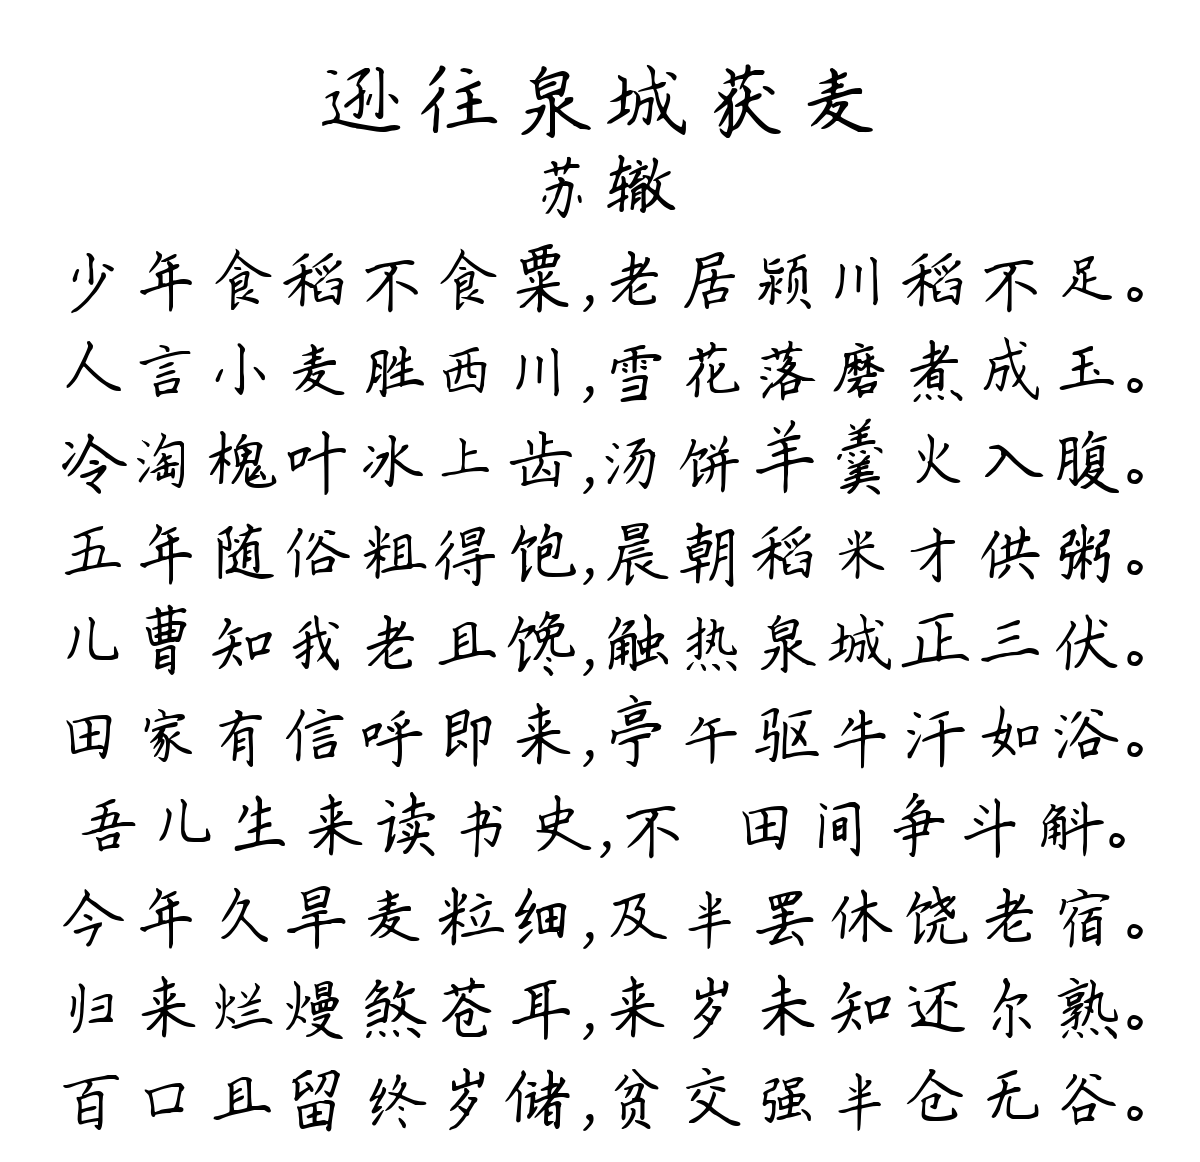 逊往泉城获麦
苏辙
少年食稻不食粟,老居颍川稻不足。
人言小麦胜西川,雪花落磨煮成玉。
冷淘槐叶冰上齿,汤饼羊羹火入腹。
五年随俗粗得饱,晨朝稻米才供粥。
儿曹知我老且馋,触热泉城正三伏。
田家有信呼即来,亭午驱牛汗如浴。
吾儿生来读书史,不 田间争斗斛。
今年久旱麦粒细,及半罢休饶老宿。
归来烂熳煞苍耳,来岁未知还尔熟。
百口且留终岁储,贫交强半仓无谷。